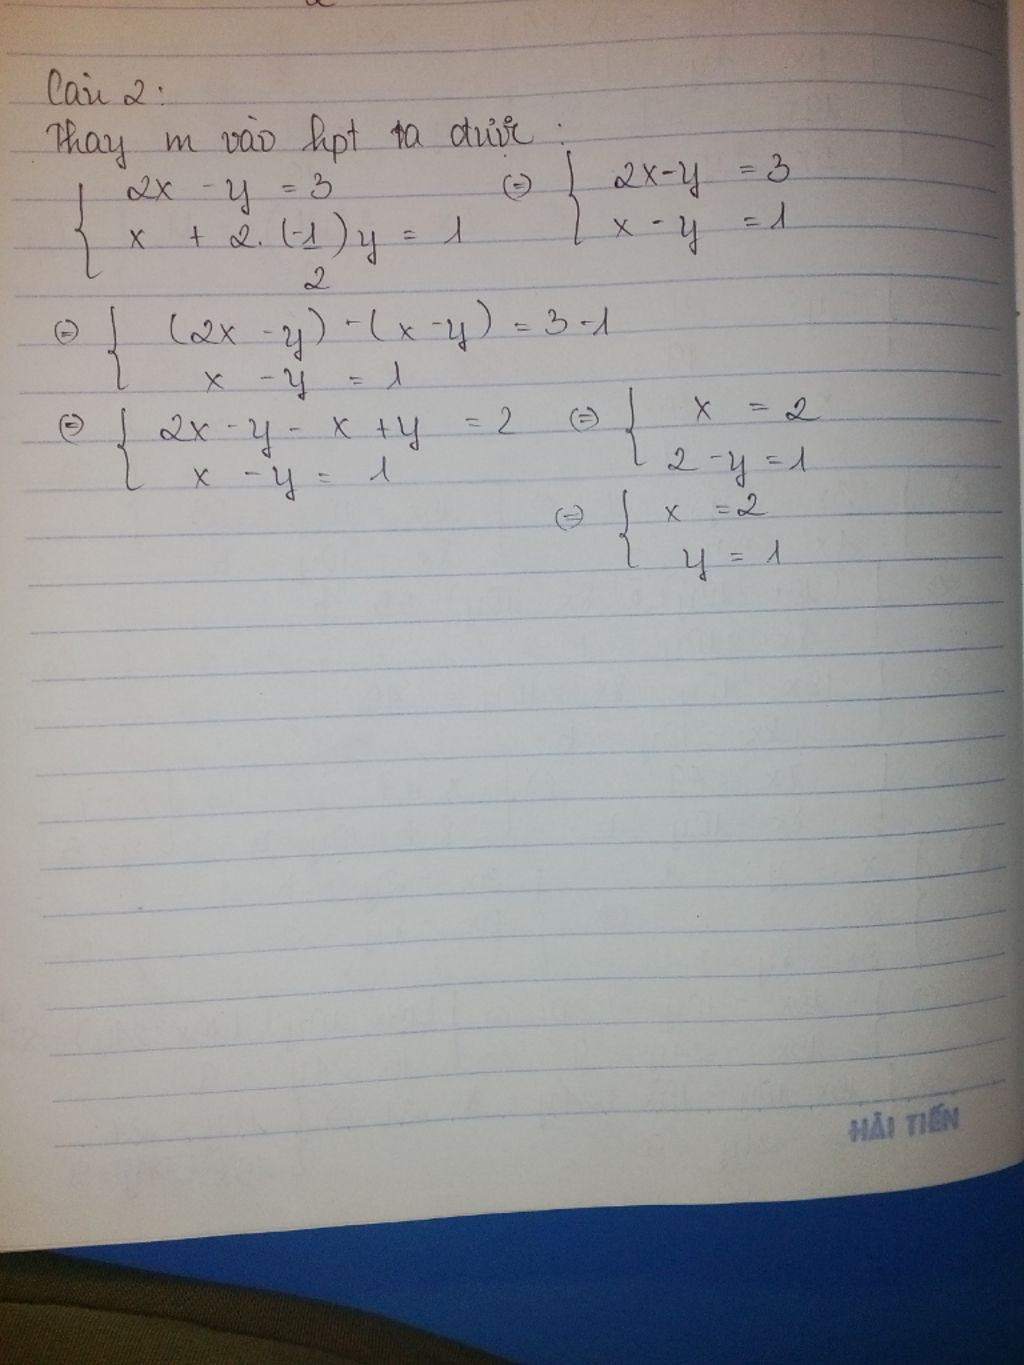 Câu 2:
Thay m vào hpt ta được:
{ 2x - y = 3 (=) { 2x - y = 3
x + 2. (-1/2) y = 1 x - y = 1
(=) { (2x - y) - (x - y) = 3 - 1
x - y = 1
(=) { 2x - y - x + y = 2 (=) { x = 2
x - y = 1 2 - y = 1
(=) { x = 2
y = 1
HẢI TIẾN